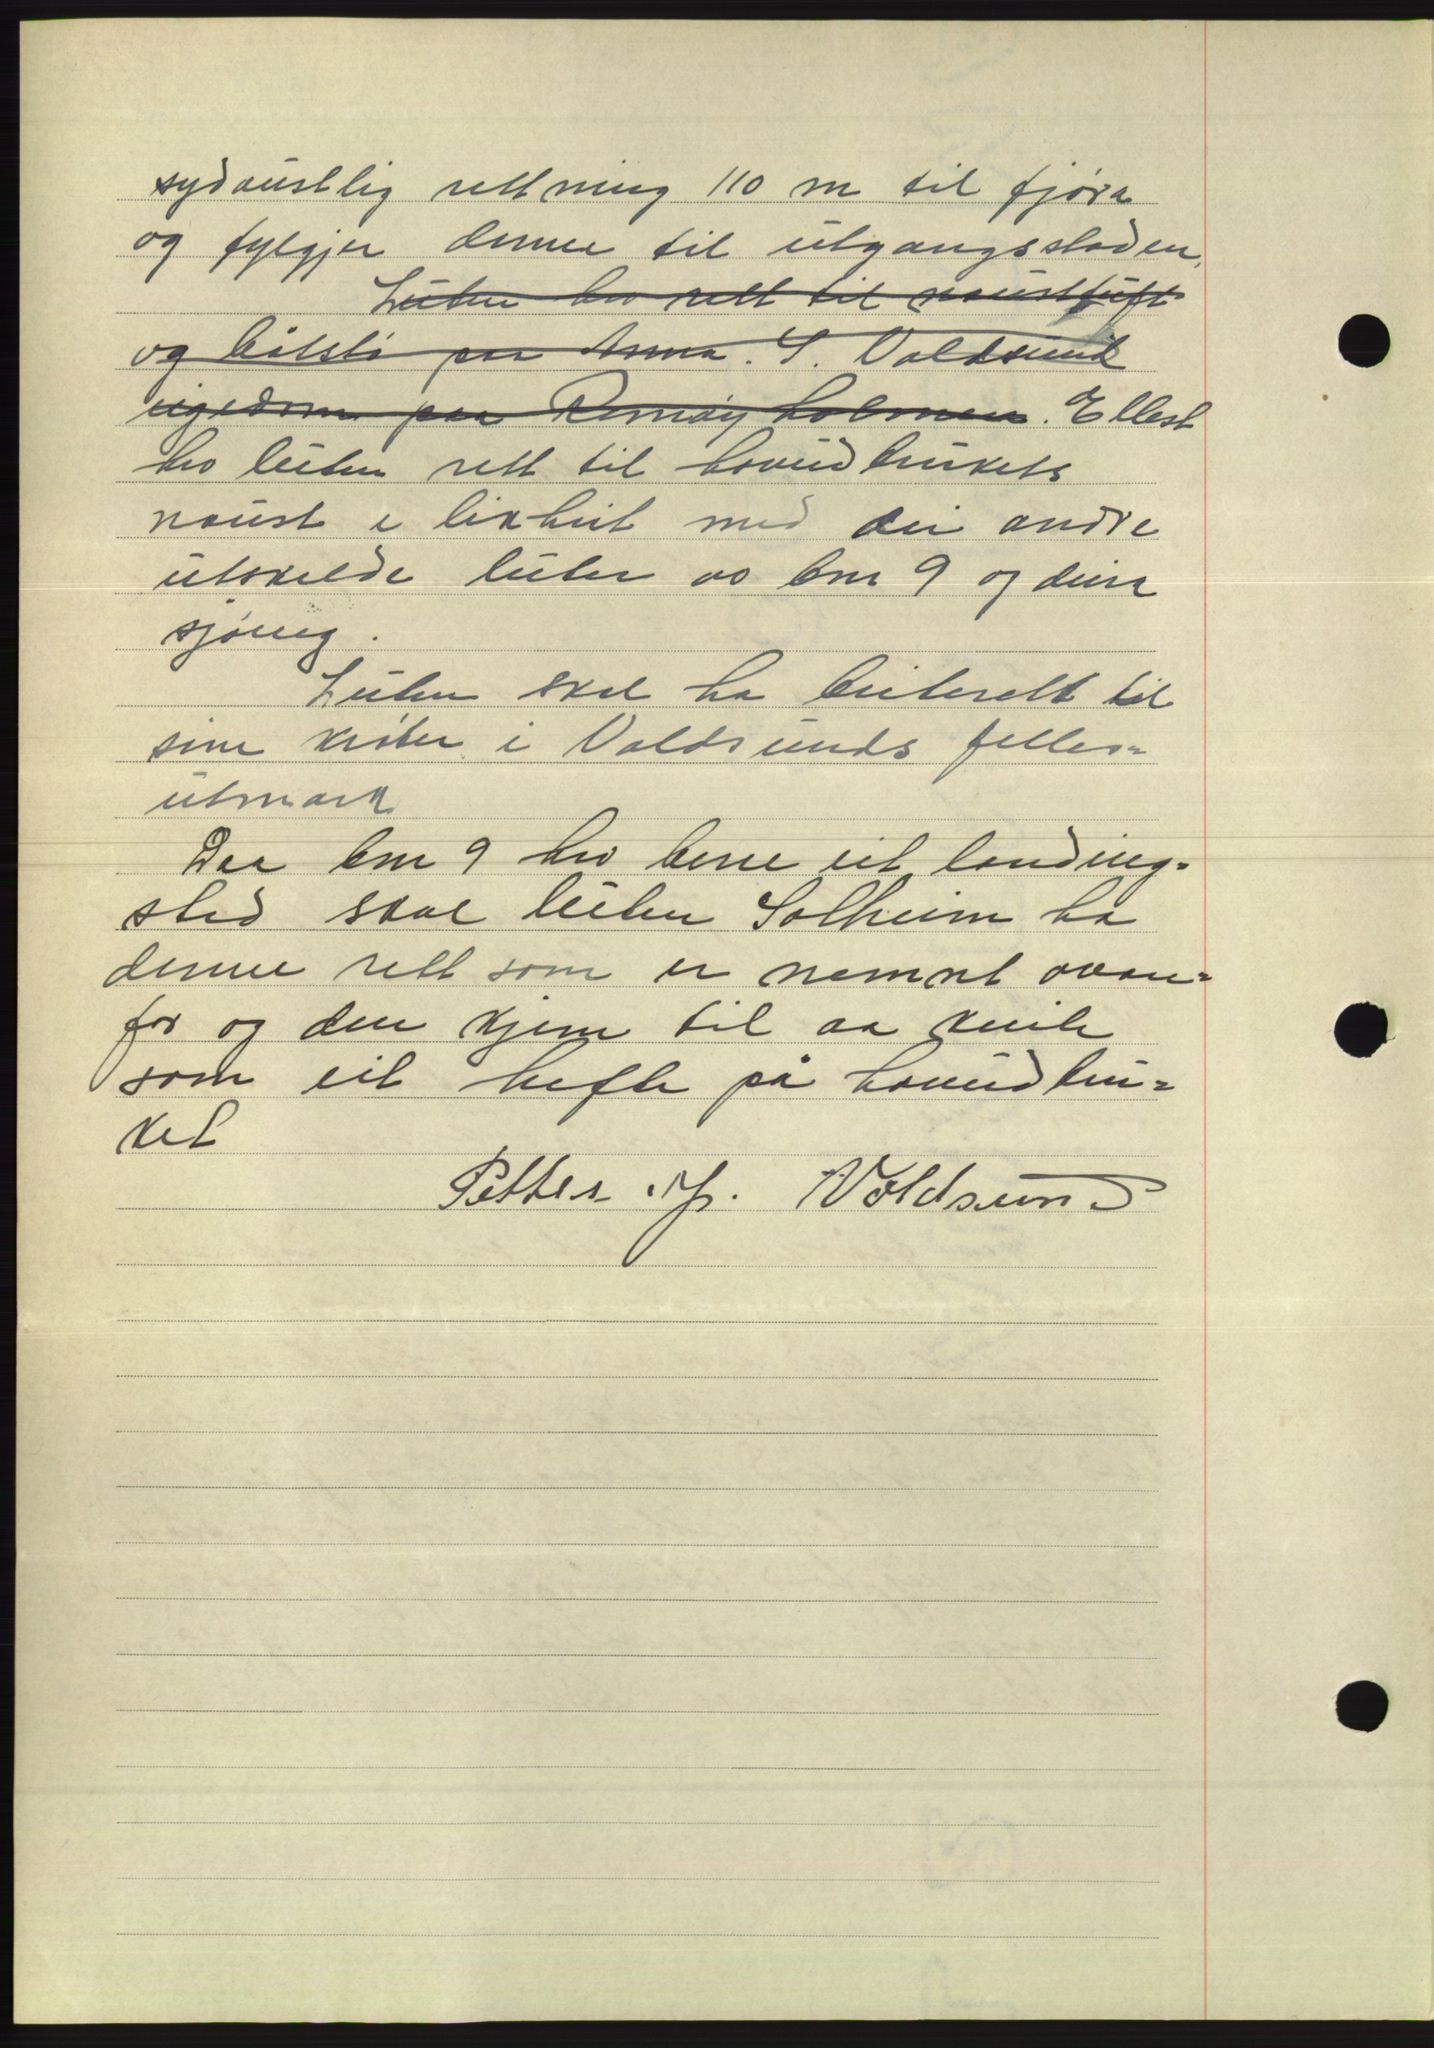 sydaustlig rettning 110 m til fjøra
og fylgjer denne til utgangsstaden.
Luten hev rett til nausttuft
og båtstø paa Anna. S. Voldsund
eigedom paa Remøy holmen. Ellest
hev luten rett til hovudbrukets
naust i likheit med dei andre
utskilde luter av bm 9 og deira
sjøveg.
Luten skal ha beiterett til
sine krøter i Voldsunds felles=
utmark
Daa bm 9 hev berre eit landing=
sted skal luten Solheim ha
denne rett som er nemnt ovan=
for og den kjem til aa kvile
som eit hefte på hovudbru=
ket
Petter P. Voldsund